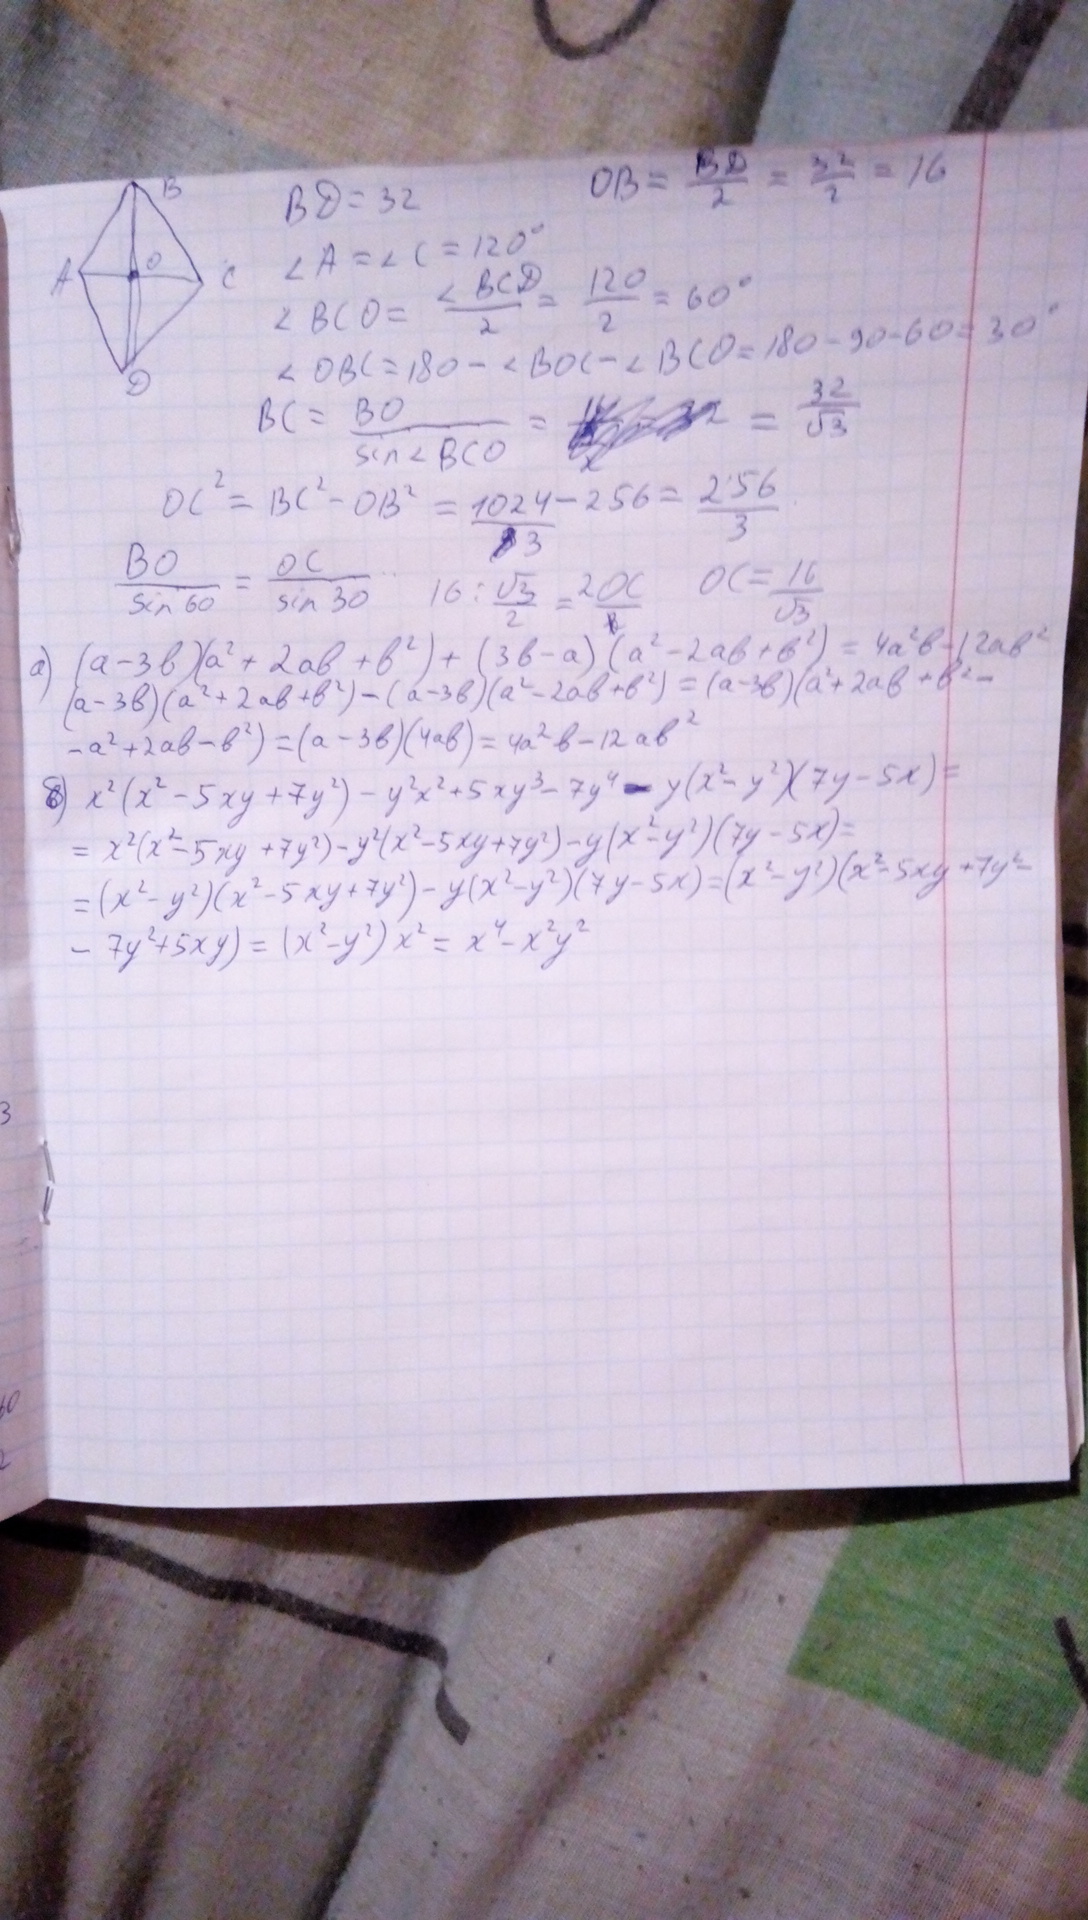 B
A O C
D
BD = 32
OB = BD/2 = 32/2 = 16
∠A = ∠C = 120°
∠BCO = ∠BCD/2 = 120/2 = 60°
∠OBC = 180 - ∠BOC - ∠BCO = 180 - 90 - 60 = 30°
BC = BO/sin∠BCO = = 32/√3
OC² = BC² - OB² = 1024/3 - 256 = 256/3
BO/sin 60 = OC/sin 30 16 : √3/2 = 2OC OC = 16/√3
а) (a-3b)(a² + 2ab + b²) + (3b-a)(a² - 2ab + b²) = 4a²b - 12ab²
(a-3b)(a²+2ab+b²) - (a-3b)(a²-2ab+b²) = (a-3b)(a²+2ab+b²-
-a²+2ab-b²) = (a-3b)(4ab) = 4a²b - 12ab²
б) x²(x² - 5xy + 7y²) - y²x² + 5xy³ - 7y⁴ - y(x² - y²)(7y - 5x) =
= x²(x² - 5xy + 7y²) - y²(x² - 5xy + 7y²) - y(x² - y²)(7y - 5x) =
= (x² - y²)(x² - 5xy + 7y²) - y(x² - y²)(7y - 5x) = (x² - y²)(x² - 5xy + 7y² -
- 7y² + 5xy) = (x² - y²) x² = x⁴ - x²y²
3
2